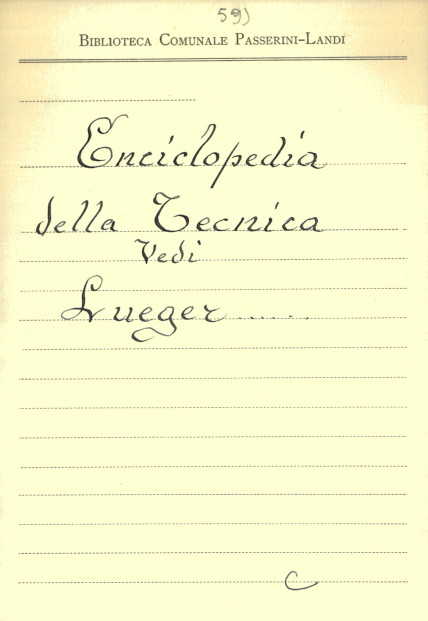 59)
BIBLIOTECA COMUNALE PASSERINI-LANDI
Enciclopedia
della Tecnica
Vedi
Lueger......
C